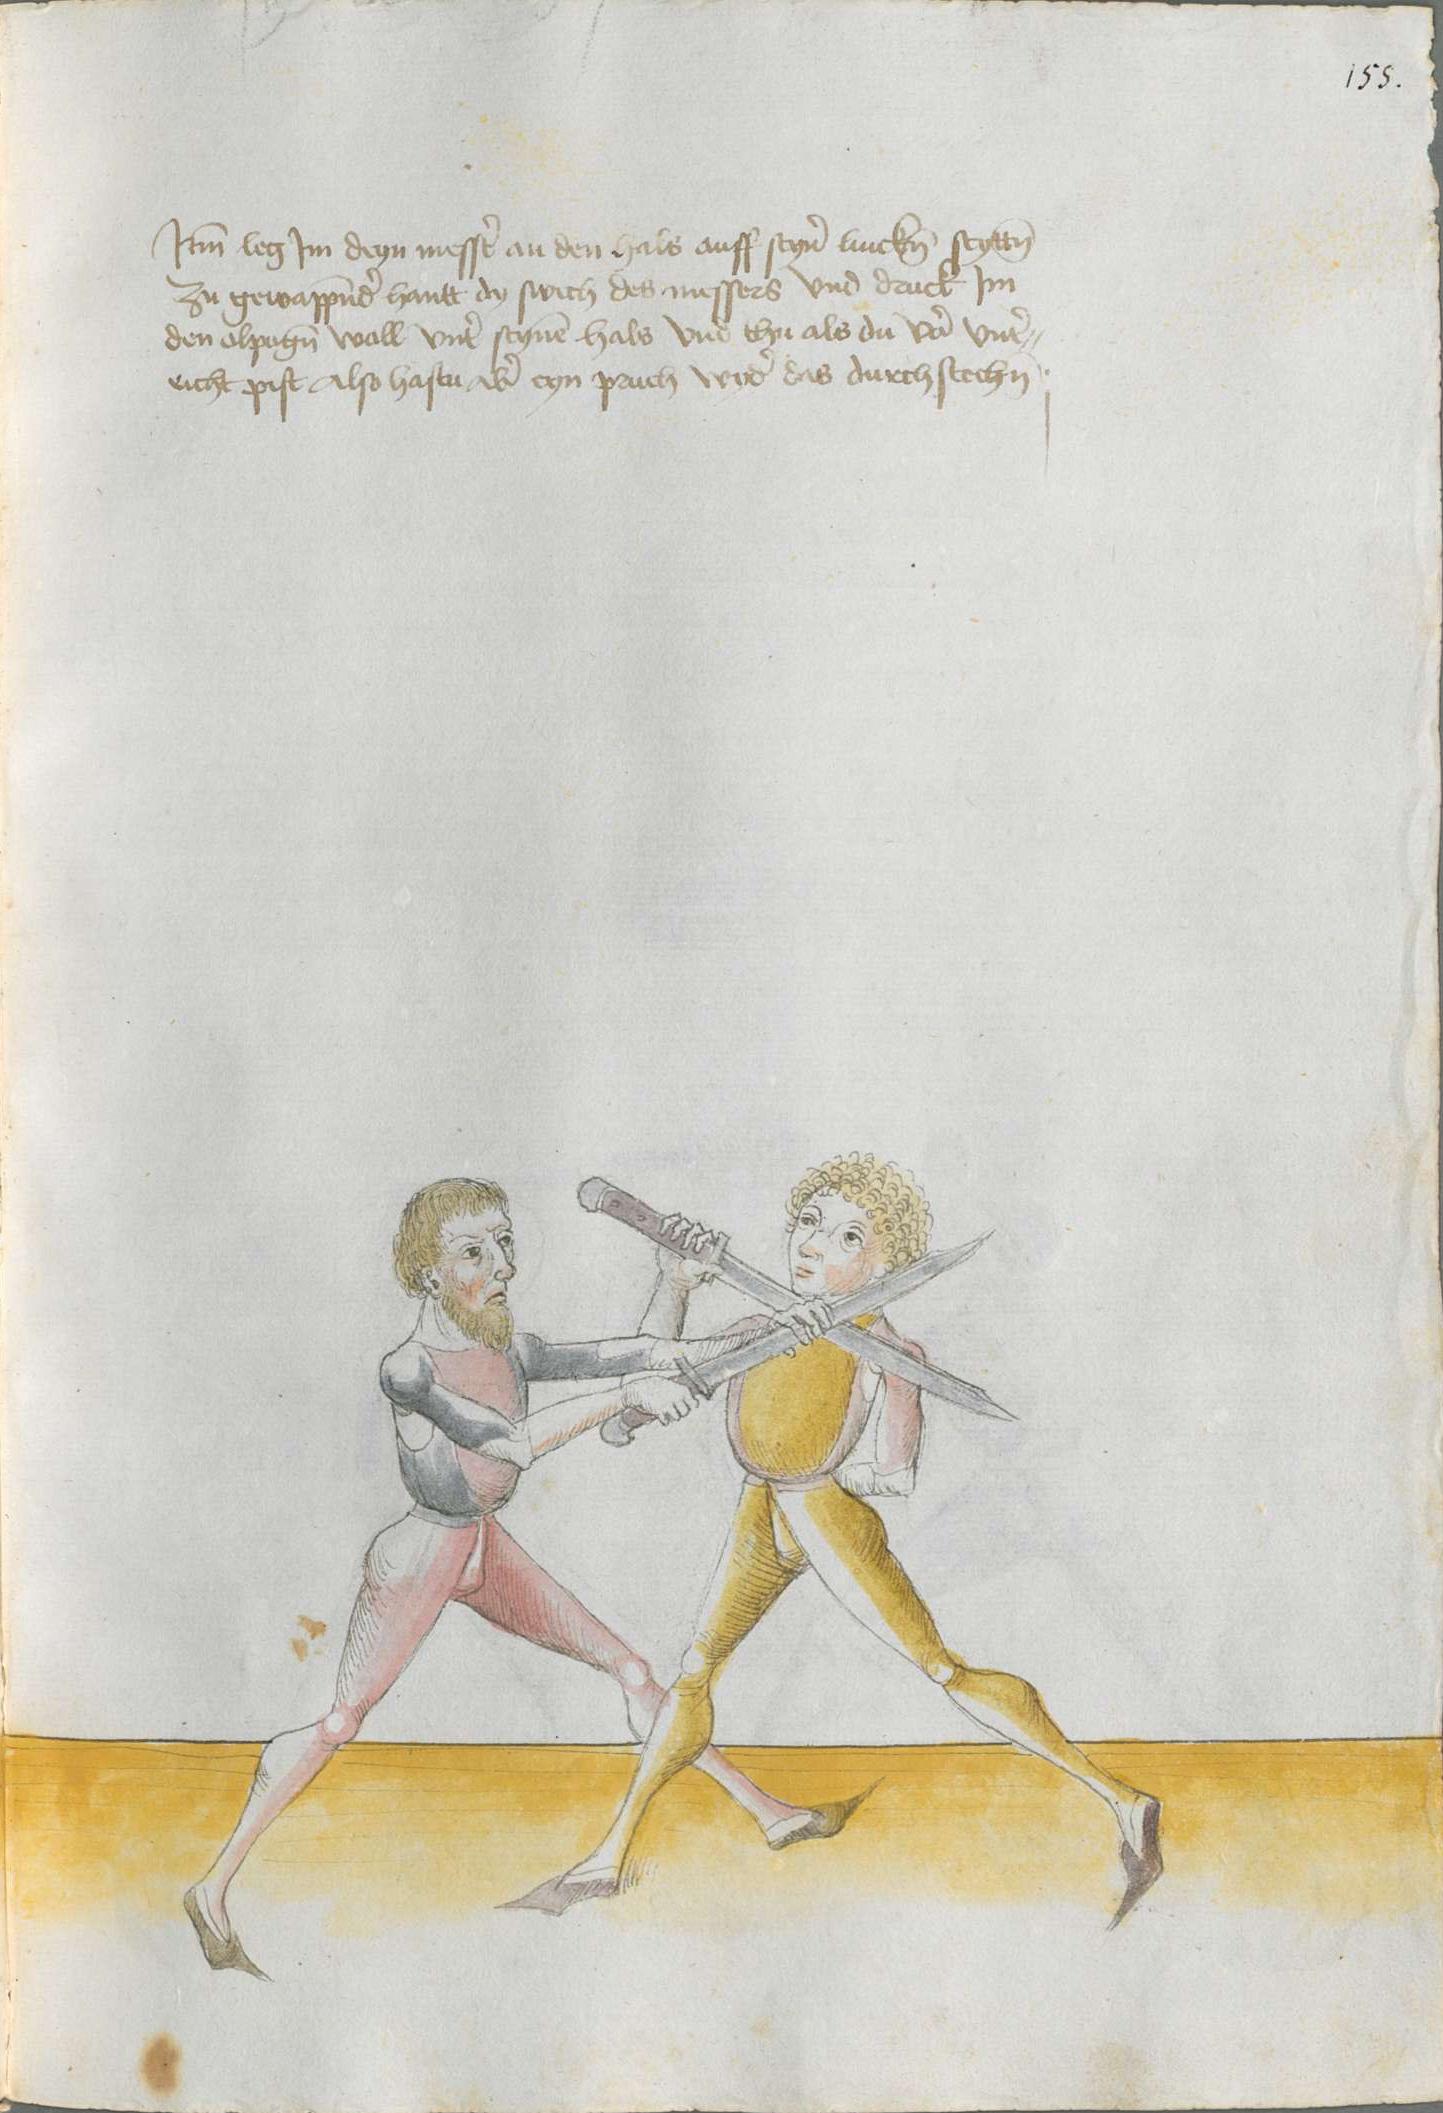 155.
Itm̄ leg Im deyn messer̄ an den hals auff seyn̄ linckn̄ seyttn̄
Zu gewappnd̄ hantt dy swech des messers vnd druck Im
den elpogn̄ woll vntr̄ seynē hals vnd thu als du vor̄ vntr̄=
richt pist also hastu ab̄ eyn pruch wyd̄ das durchstechn̄